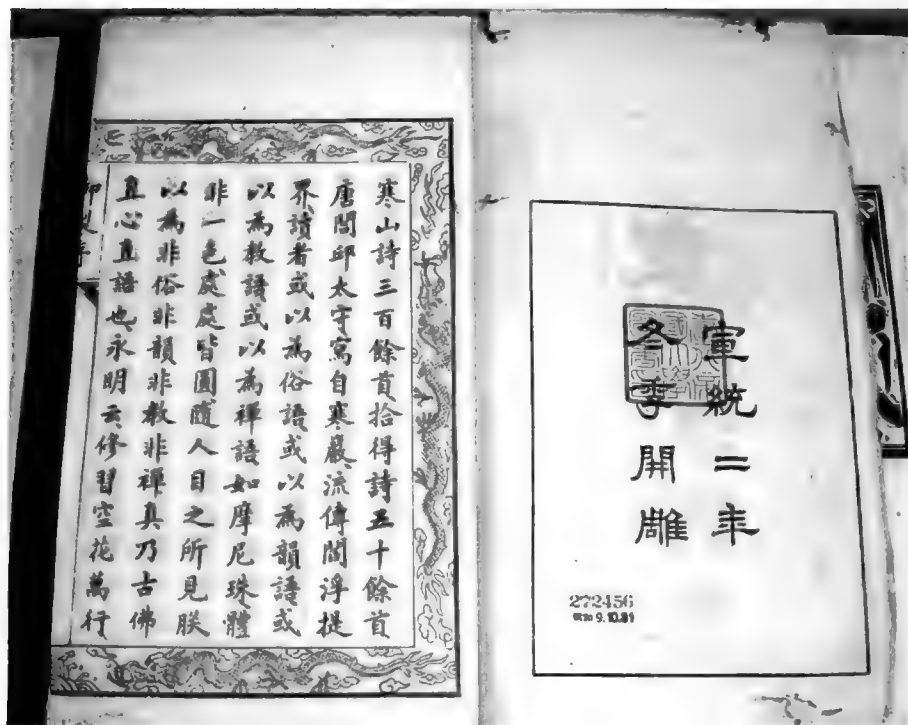 宣統二年
冬季開雕
272456
9.10.81
寒山詩三百餘首拾得詩五十餘首
唐閭邱太守寫自寒巖流傳閻浮提
界讀者或以為俗語或以為韻語或
以為教語或以為禪語如摩尼珠體
非一色處處皆圓隨人目之所見朕
以為非俗非韻非教非禪真乃古佛
直心直語也永明云修習空花萬行
御製序